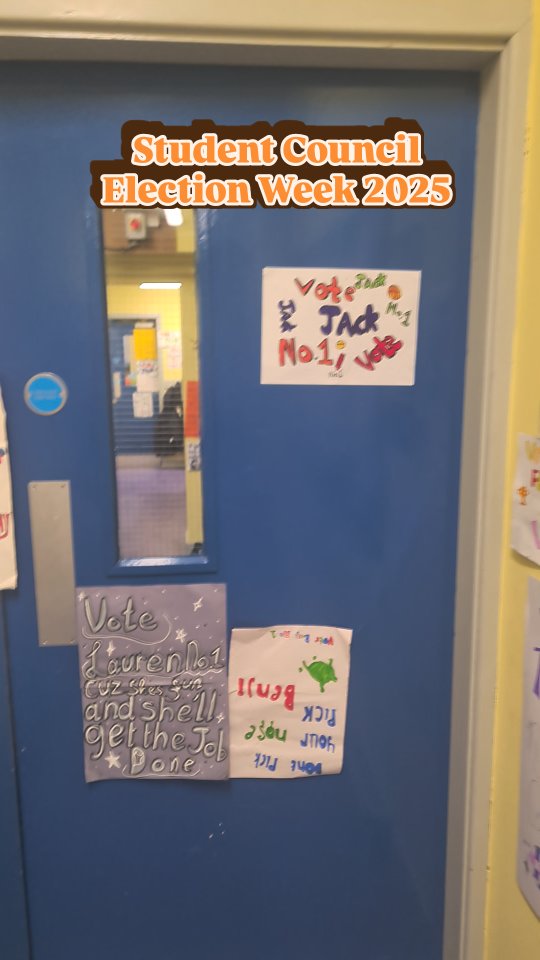 Student Council
Election Week 2025
Vote Jack
No.1
Jack
JAck
No.1! Vote
Vote
Lauren No.1
Cuz shes fun
and shell
get the Job
Done
Dont Pick
your nose
Pick
Benji